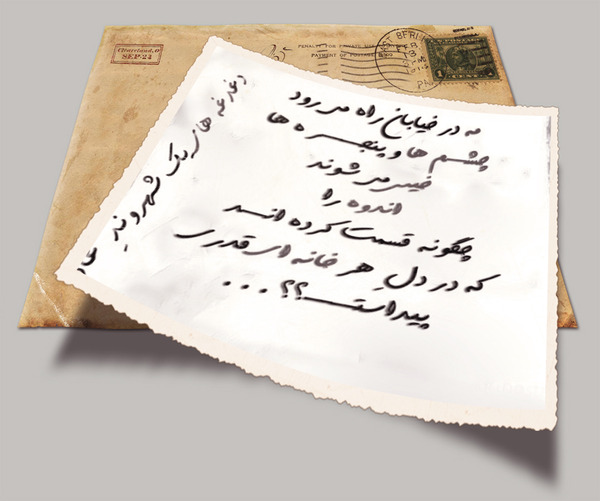 Cleveland, O
SEP 24
PENALTY FOR PRIVATE
PAYMENT OF POSTAGE
1 CENT
مه در خیابان راه می رود
چشم ها و پنجره ها
خیس می شوند
اندوه را
چگونه قسمت کرده اند
که در دلِ هر خانه ای قدری
پیداست؟؟...
دغدغه های یک شهروند